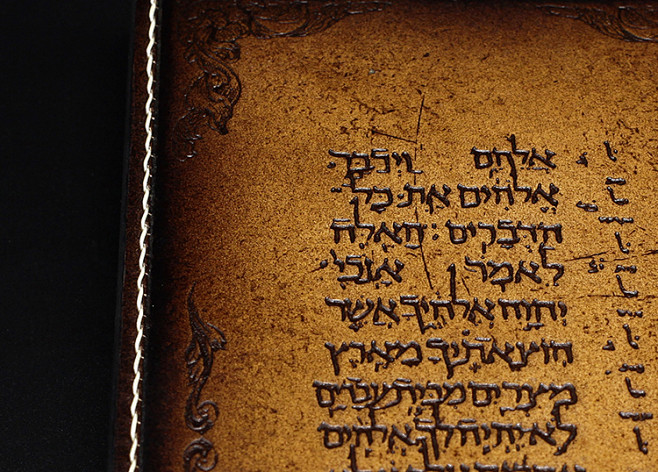 אלהם וידבר
אלהים את כל
הדברים : האלה
לאמר אנכי
יהוה אלהיך אשר
הוצאתיך מארץ
מצרים מבית עבדים
לא יהיה לך אלהים